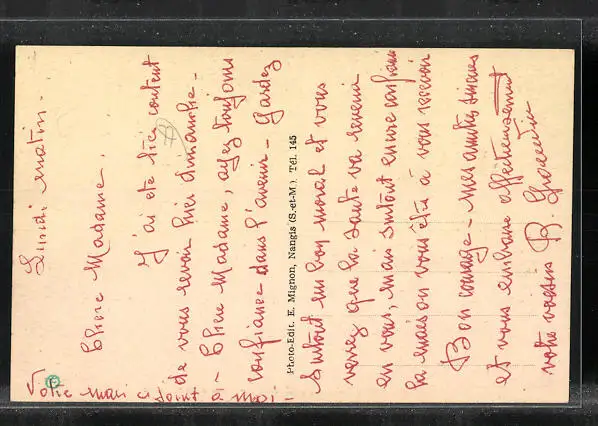 Lundi matin.
Chère Madame.
J'ai été très content
de vous revoir hier dimanche -
- Chère Madame, ayez toujours
confiance dans l'avenir - Gardez
Photo-Edit. E. Mignon, Nangis (S.-et-M.). Tél. 145
surtout un bon moral et vous
verrez que la santé va revenir
en vous, mais surtout encore confiance
la maison vous êtes à vous recevoir
Bon courage - mes amitiés sincères
et vous embrasse affectueusement
votre voisin B.
Votre mari ci joint à moi -